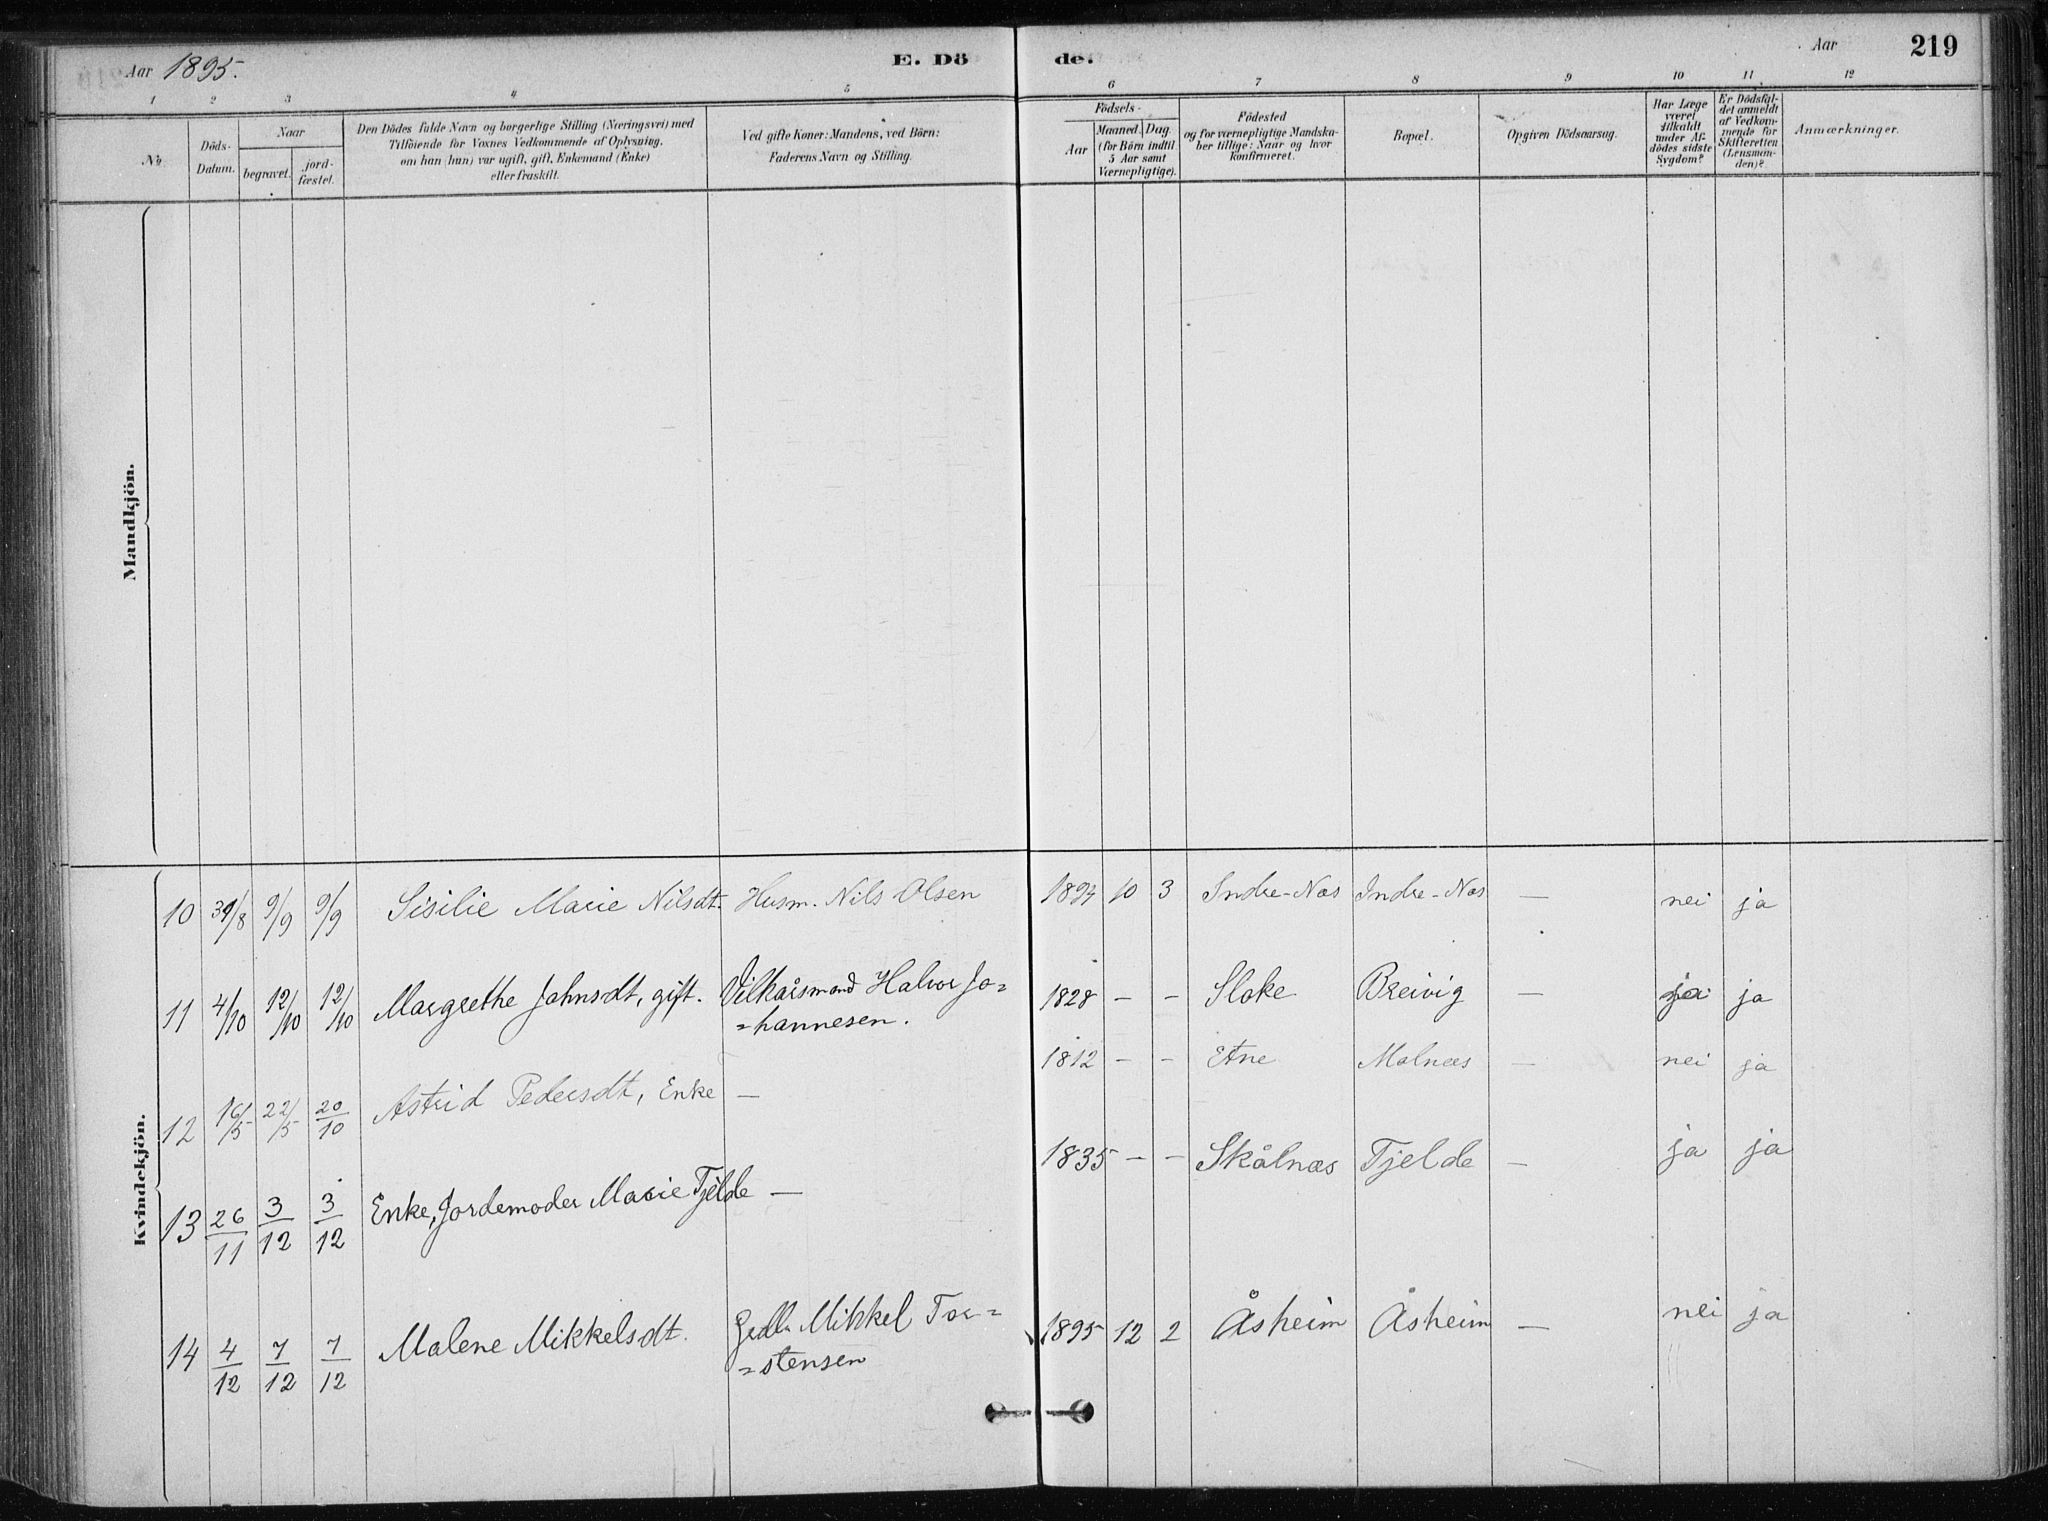 Aar 1895.
E. Dö de.
Aar
219
1 2 3 4 5 6 7 8 9 10 11 12
No.
Döds-
Datum.
Naar
begravet.
jord-
fæstet.
Den Dödes fulde Navn og borgerlige Stilling (Næringsvei) med
Tilföiende for Voxnes Vedkommende af Oplysning,
om han (hun) var ugift, gift, Enkemand (Enke)
eller fraskilt.
Ved gifte Koner: Mandens, ved Börn:
Faderens Navn og Stilling.
Födsels-
Aar
Maaned. Dag.
(for Börn indtil
5 Aar samt
Værnepligtige).
Födested
og for værnepligtige Mandska-
ber tillige: Naar og hvor
konfirmeret.
Bopæl.
Opgiven Dödsaarsag.
Har Læge
været
tilkaldt
under Af-
dödes sidste
Sygdom?
Er Dödsfal-
det anmeldt
af Vedkom-
mende for
Skifteretten
(Lensman-
den)?
Anmærkninger.
Mandkjön.
Kvindekjön.
10 /8 9/9 9/9 Sisilie Marie Nilsdt. Husm. Nils Olsen 1894 10 3 Indre-Nas Indre-Nas — nei ja
11 4/10 12/10 12/10 Margrethe Jahnsdt, gift. Vilkårsmand Halvor Jo=
=hannesen. 1828 — — Sloke Breivig — ja ja
12 16/5 22/5 20/10 Astrid Pedersdt, Enke — 1812 — — Etne Malnæs — nei ja
13 26/11 3/12 3/12 Enke, Jordemoder Marie Tjelde — 1835 — — Skålnæs Tjelde — ja ja
14 4/12 7/12 7/12 Malene Mikkelsdt. Mikkel Tor=
=stensen 1895 12 2 Åsheim Åsheim — nei ja